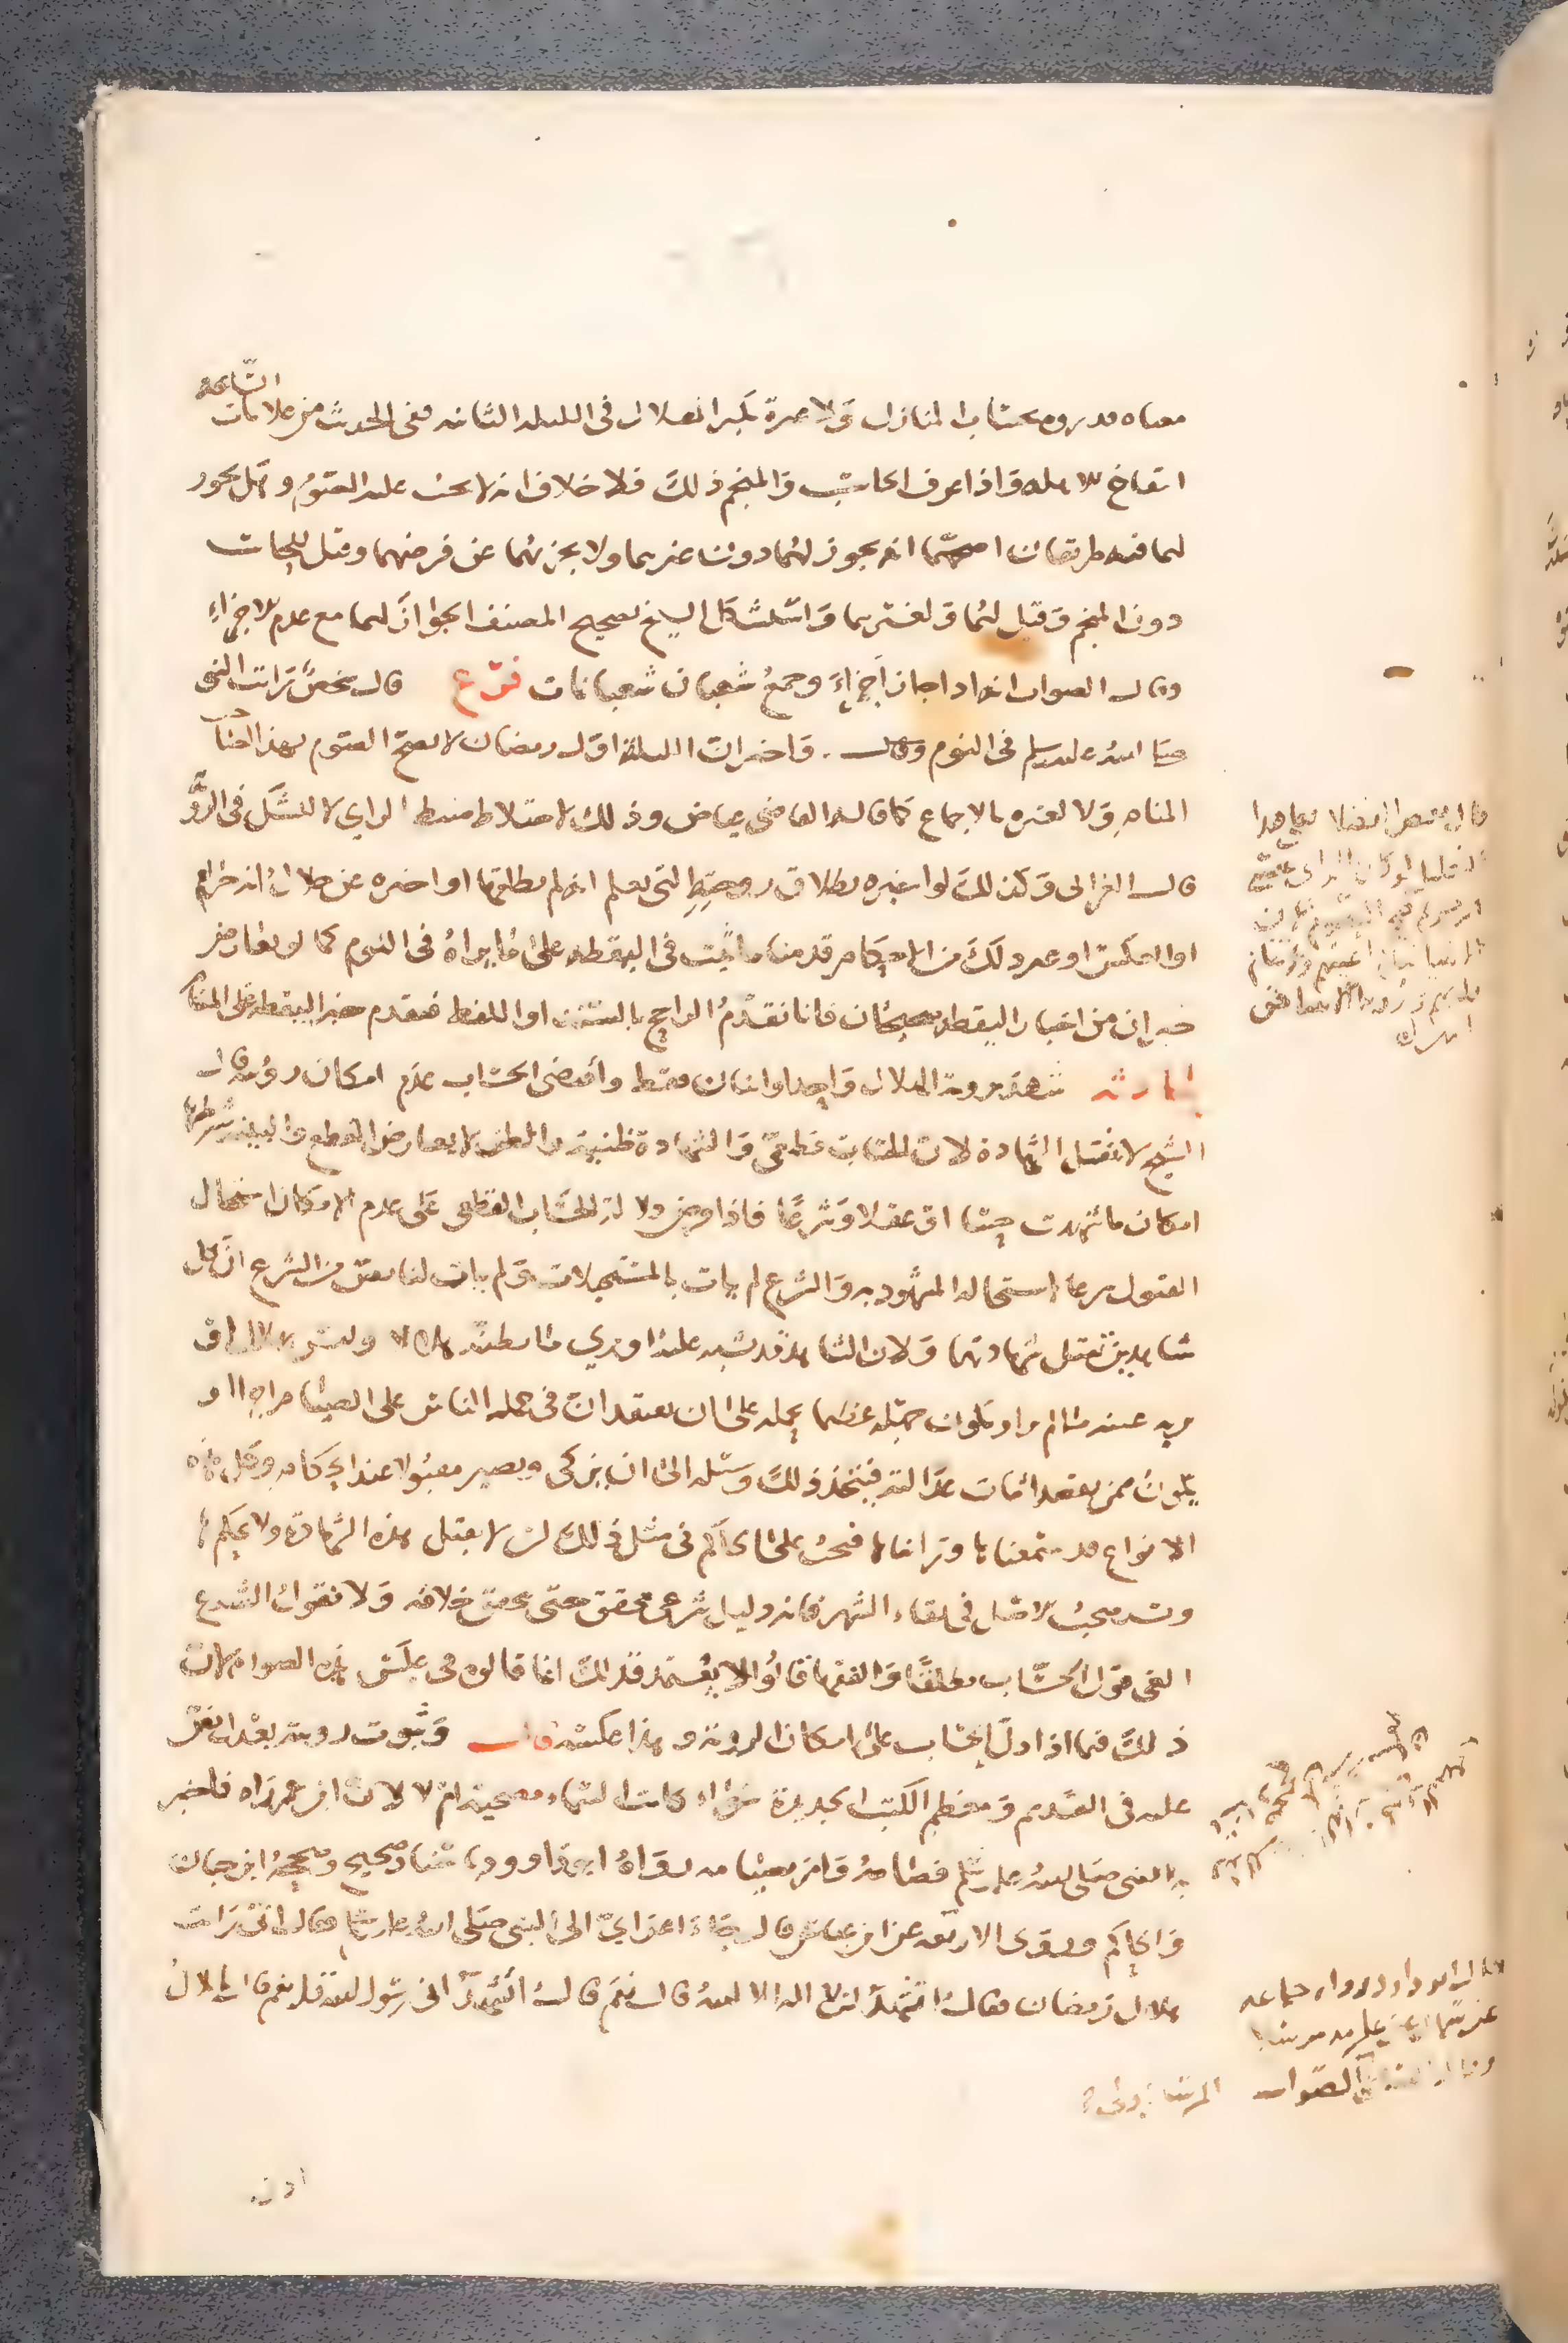 معناه قدروه بحساب المنازل ولا عبرة بكبر الهلال في الليلة الثانية ففي الحديث من علامات الساعة
انتفاخ الاهلة واذا عرف الحاسب والمنجم ذلك فلا خلاف انه لا يجب عليه الصوم وهل يجوز
لهما فيه طريقان اصحهما انه يجوز لهما دون غيرهما ولا يجزئهما عن فرضهما وقيل للحاسب
دون المنجم وقيل لهما ولغيرهما واستشكل الشيخ تصحيح المصنف الجواز لهما مع عدم الاجزاء
وقال الصواب انه اذا جاز اجزاء وجمع شعبان شعبانات فرع قال شخص رايت النبي
صلى الله عليه وسلم في النوم وقال واخبرني ان الليلة اول رمضان لا يصح الصوم بهذا لصاحب
المنام ولا لغيره بالاجماع كما قاله القاضي عياض وذلك لاختلاط ضبط الراي لا للشك في الرؤية
قال الغزالي وكذلك لو اخبره بطلاق زوجته التي يعلم انه لم يطلقها او اخبره عن حلال انه حرام
او العكس او غير ذلك من الاحكام قدمنا ما ثبت في اليقظة على ما يراه في النوم كما لو تعارض
خبران من اخبار اليقظة صحيحان فانا نقدم الراجح بالسند او اللفظ فيقدم خبر اليقظة على المنام
شهد بروية الهلال واحد او اثنان فقط واقتضى الحساب عدم امكان رؤيته قال
الشيخ لا تقبل الشهادة لان الحساب قطعي والشهادة ظنية والظن لا يعارض القطع والبينة شرطها
امكان ما شهدت به حسا او عقلا وشرعا فاذا فرض دلالة الحساب القطعي على عدم الامكان استحال
القبول شرعا لاستحالة المشهود به والشرع لم يات بالمستحيلات ولم يات لنا نص من الشرع ان كل
شاهدين تقبل شهادتهما ولان الشاهد قد يشتبه عليه او يرى ما يظنه هلالا وليس بهلال او
تريه عينه ما لم ير او يكون جهله عظيما يحمله على ان يعتقد ان في حمله الناس على الصيام اجرا او
يكون ممن يقصد اثبات عدالته فيتخذ ذلك وسيلة الى ان يزكى ويصير مقبولا عند الحكام وكل هذه
الانواع قد سمعناها ورايناها فيجب على الحاكم في مثل ذلك ان لا يقبل هذه الشهادة ولا يحكم بها
ويستصحب الاصل في بقاء الشهر فانه دليل شرعي محقق حتى يتحقق خلافه ولا نقول الشرع
الغى قول الحساب مطلقا والفقهاء قالوا لا يعتمد فذلك انما قالوه في عكس هذه الصورة لان
ذلك فيما اذا دل الحساب على امكان الروية وهذا عكسه قال وثبوت رويته بعدل نص
عليه في القديم ومعظم الكتب الجديدة سواء كانت السماء مصحية ام لا لان ابن عمر راه فاخبر
به النبي صلى الله عليه وسلم فصامه وامر بصيامه رواه ابو داوود باسناد صحيح وصححه ابن حبان
والحاكم وروى الاربعة عن ابن عباس قال جاء اعرابي الى النبي صلى الله عليه وسلم فقال اني رايت
هلال رمضان فقال اتشهد ان لا اله الا الله قال نعم قال اتشهد اني رسول الله قال نعم قال يا بلال
قال بعض الفضلاء
قال ابو داود رواه جماعة
اذن